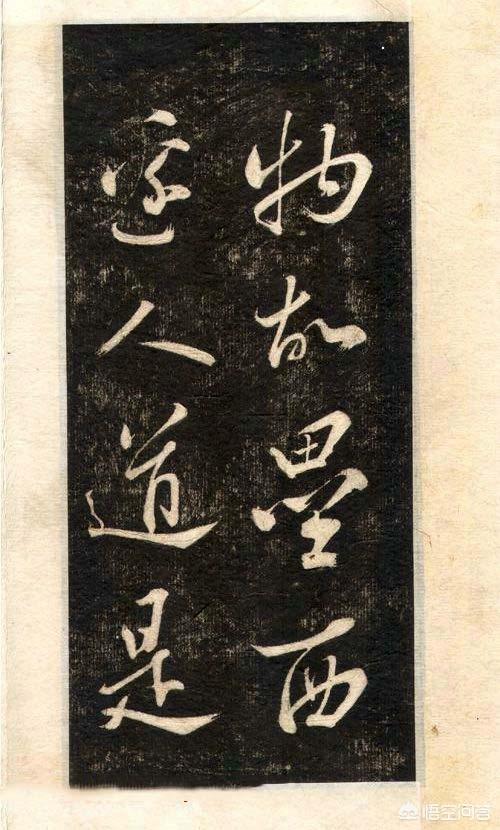 物故壘西
邊人道是
悟空问答